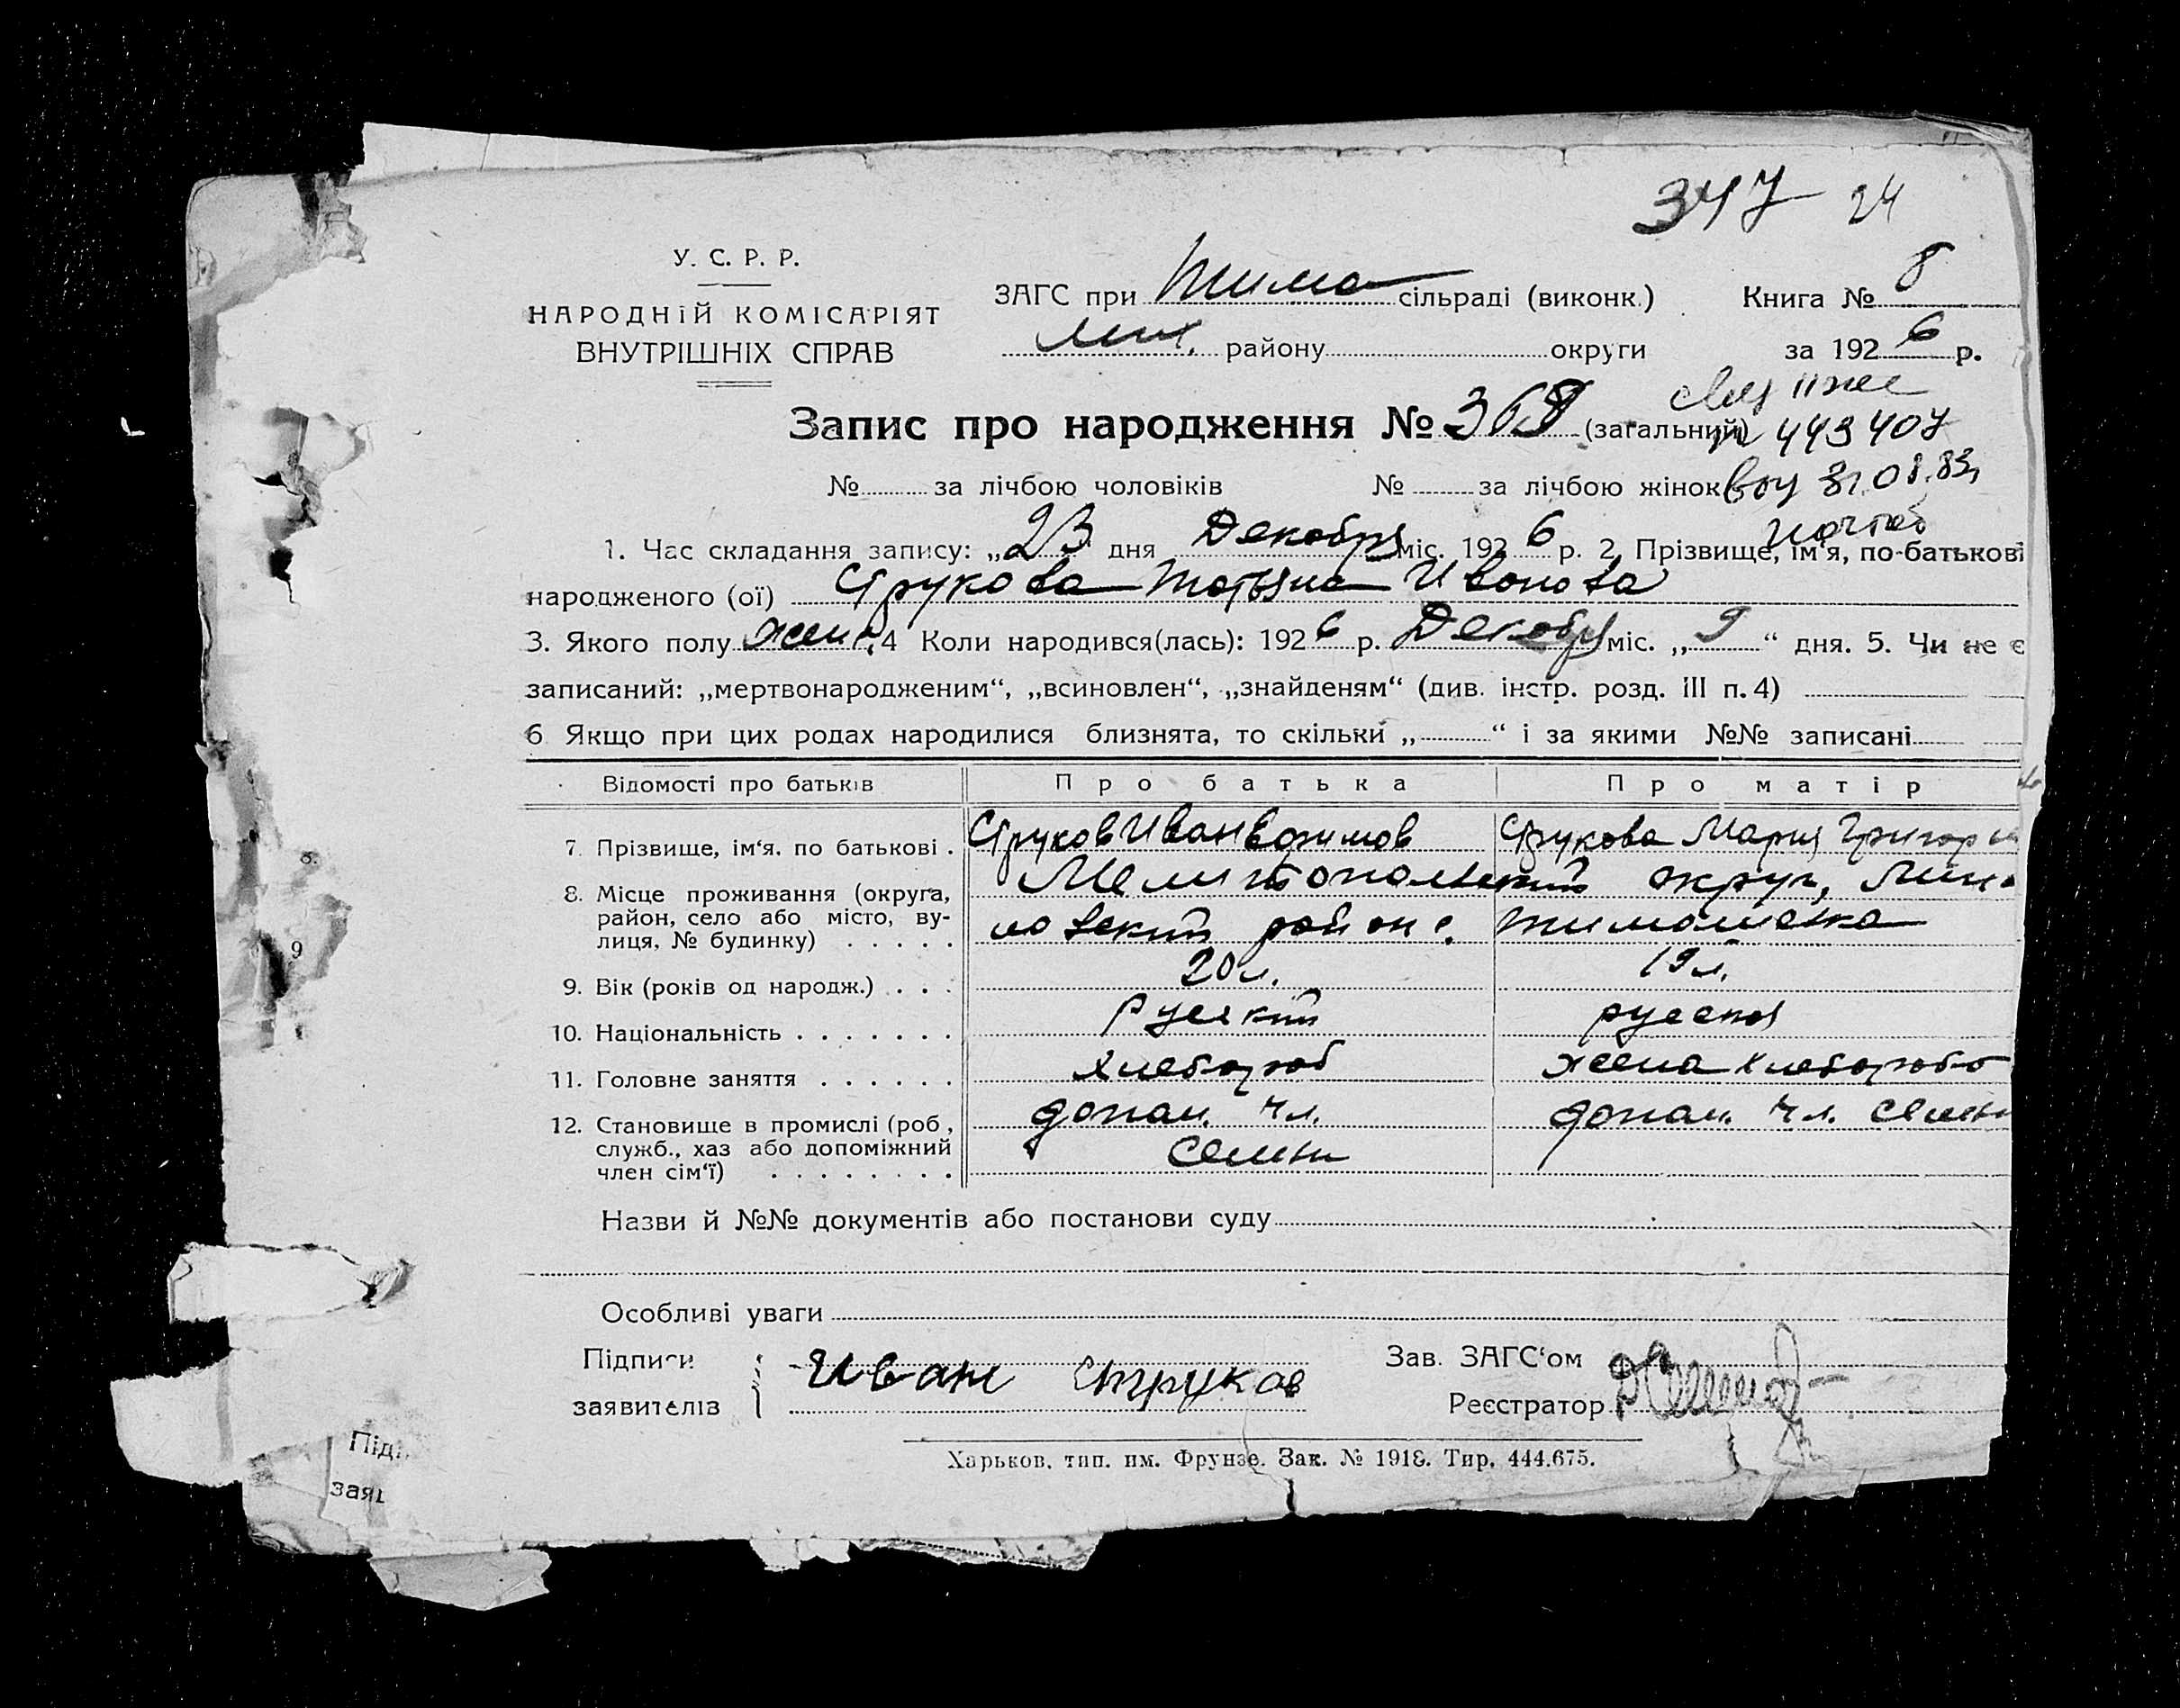 347 24
У. С. Р. Р.
НАРОДНІЙ КОМІСАРІЯТ
ВНУТРІШНІХ СПРАВ
ЗАГС при Тима сільраді (виконк.) Книга № 8
Мих. району округи за 1926 р.
Запис про народження № 368 (загальний)
443407
№ за лічбою чоловіків № за лічбою жінок 31.08.83
1. Час складання запису: „23“ дня Декабря міс. 1926 р. 2. Прізвище, ім‘я, по-батькові
народженого (ої) Струкова Татьяна Иванова
3. Якого полу жен. 4 Коли народився(лась): 1926 р. Декабря міс. „9“ дня. 5. Чи не є
записаний: „мертвонародженим“, „всиновлен“, „знайденям“ (див. інстр. розд. III п. 4)
6 Якщо при цих родах народилися близнята, то скільки „ “ і за якими №№ записані
Відомості про батьків Про батька Про матір
7. Прізвище, ім‘я. по батькові . Струков Иван Ефимов Струкова Мария Григорь
8. Місце проживання (округа, район, село або місто, вулиця, № будинку) Мелитопольский округ, Миха
ловский район с. Тимошовка
9. Вік (років од народж.) . . . 20 л. 19 л.
10. Національність . . . . . . . Руский руская
11. Головне заняття . . . . . . хлебороб жена хлебороба
12. Становище в промислі (роб, служб., хаз або допоміжний член сім‘ї) . . . . . . . . допом. чл. семьи допом. чл. семьи
Назви й №№ документів або постанови суду
Особливі уваги
Підписи заявителів Иван Струков
Зав. ЗАГС‘ом
Реєстратор
Харьков. тип. им. Фрунзе. Зак. № 1918. Тир. 444.675.
9
Підп
заяв